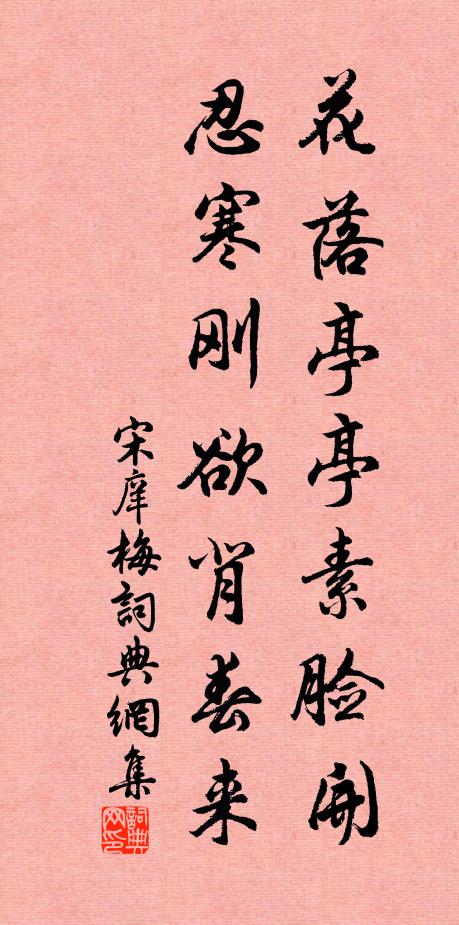 花落亭亭素脸开
忍寒刚欲背春来
宋庠梅詞典網集
詞典網印